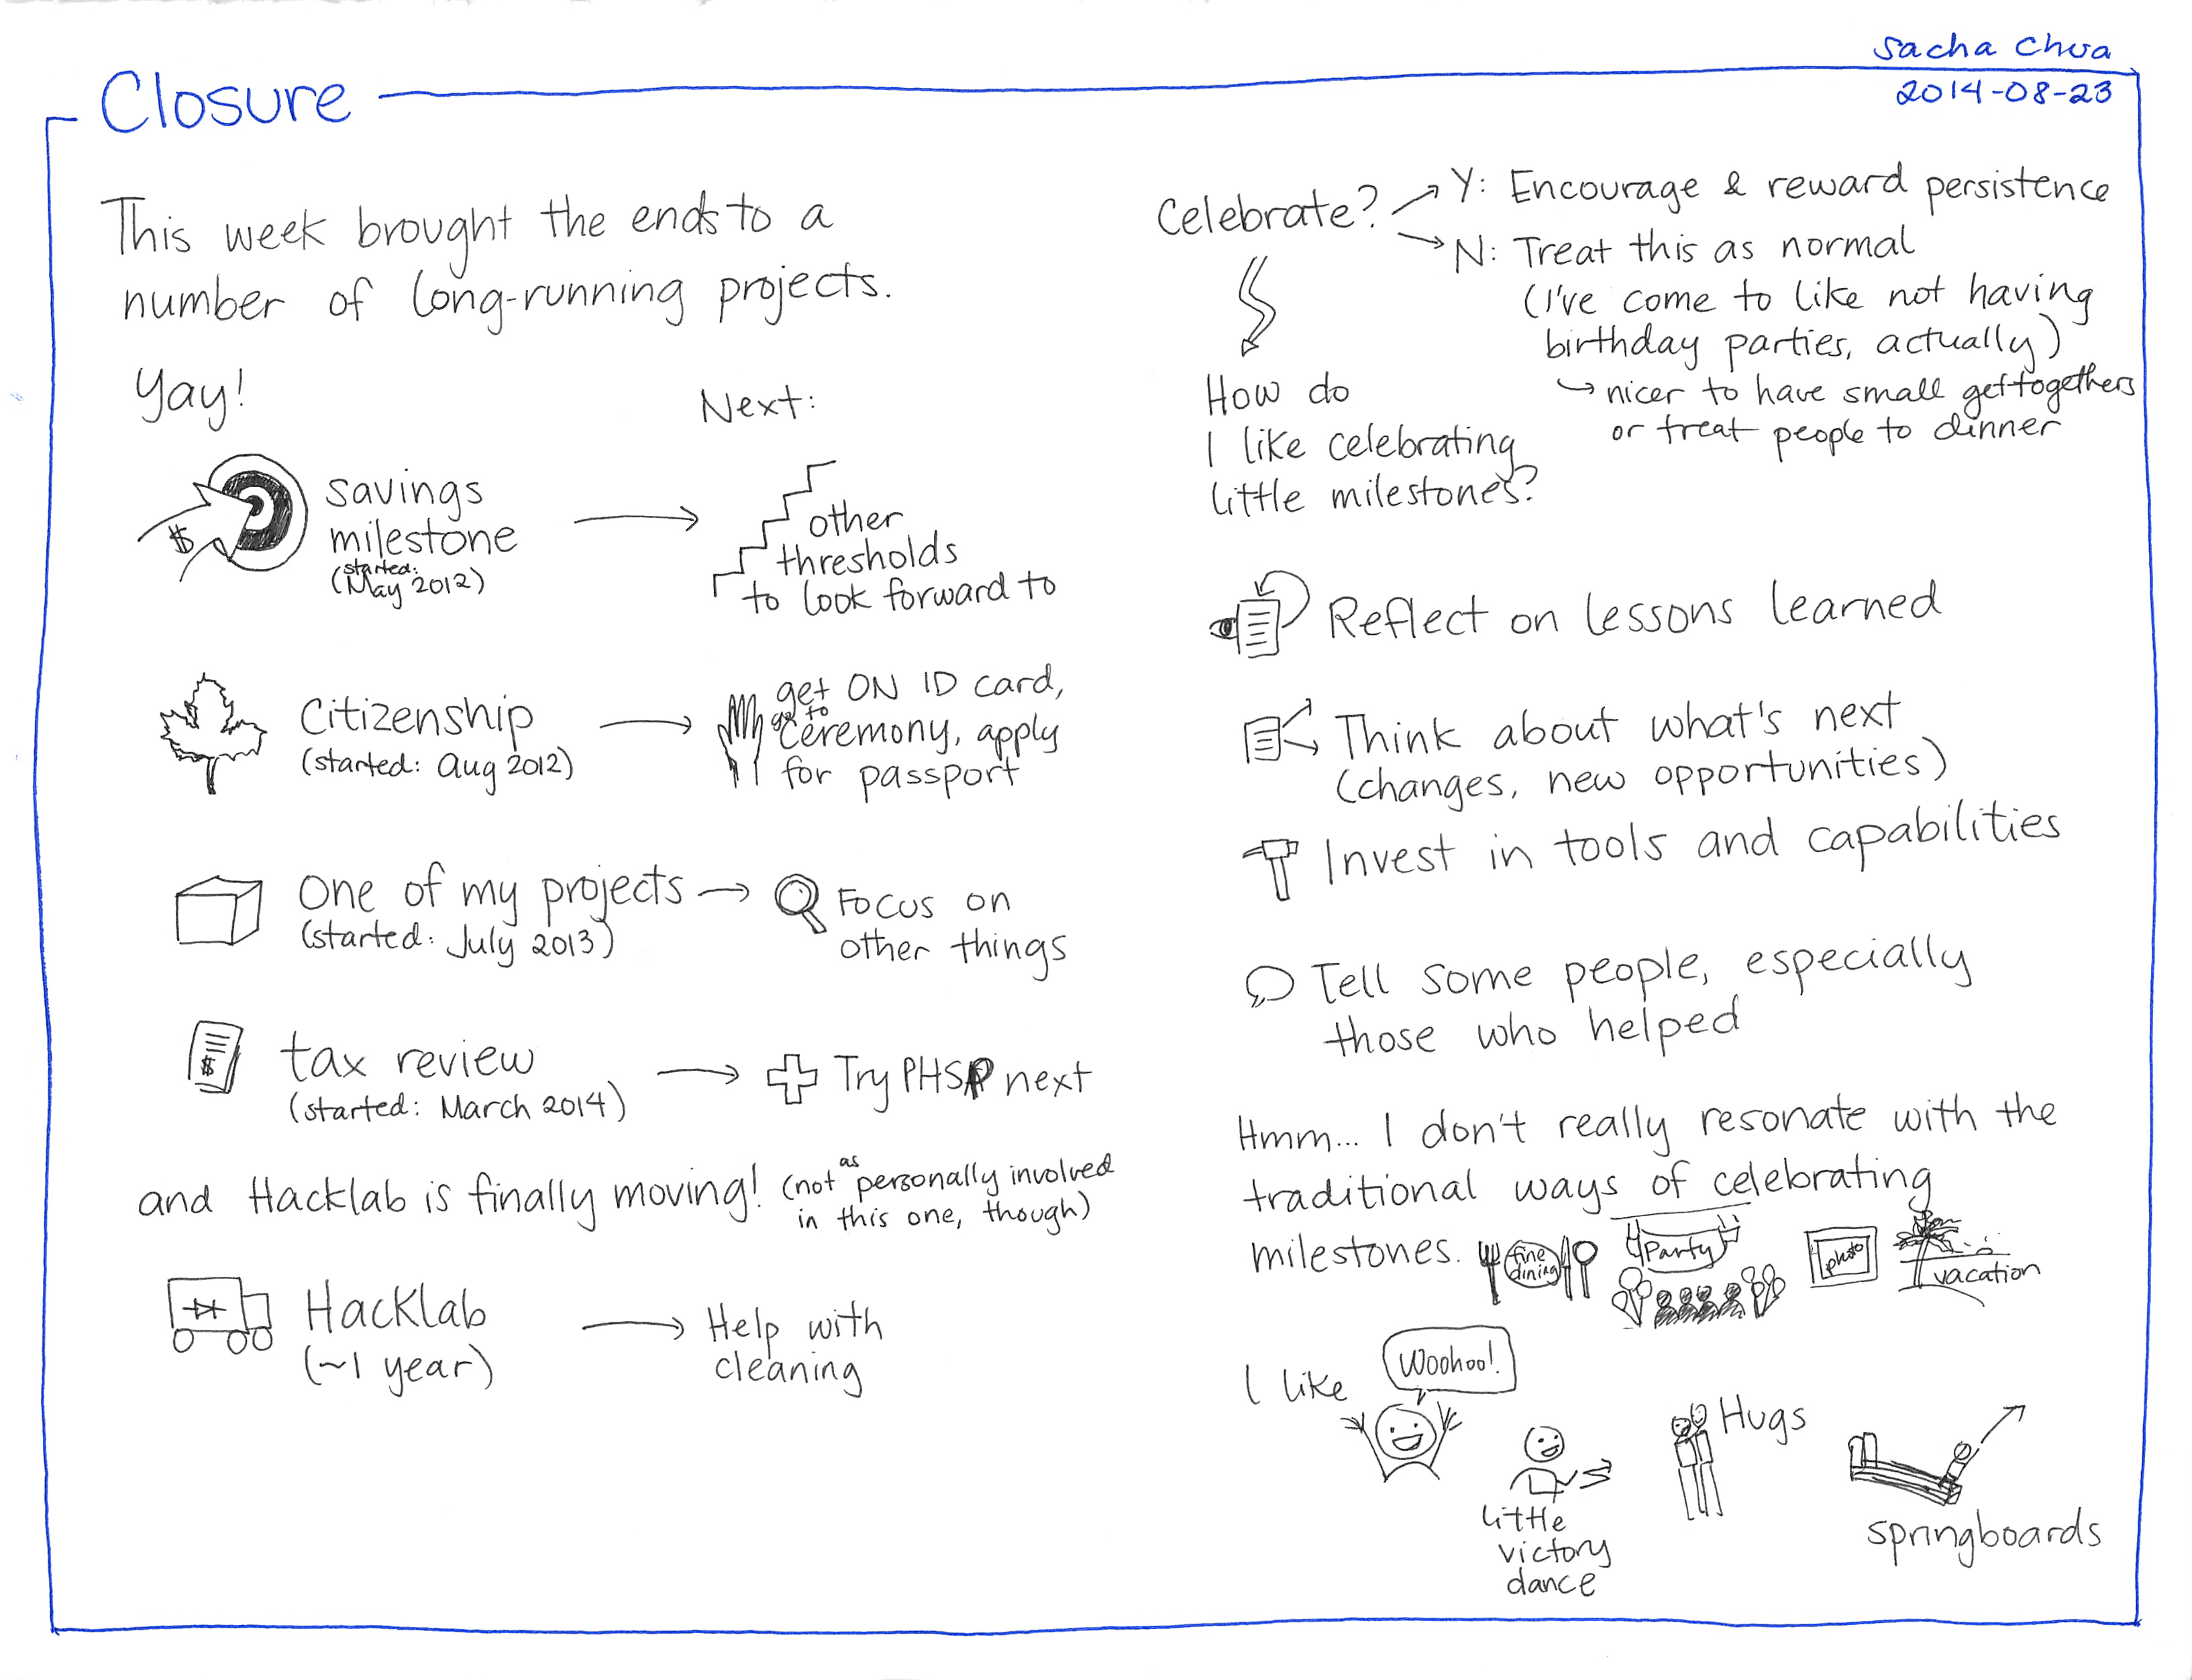 Sacha Chua
2014-08-23
Closure
This week brought the ends to a
number of long-running projects.
Yay!
Next:
$
savings
milestone
(started:
May 2012)
other
thresholds
to look forward to
Citizenship
(started: Aug 2012)
get ON ID card,
go to
ceremony, apply
for passport
One of my projects
(started: July 2013)
Focus on
other things
$
tax review
(started: March 2014)
Try PHSP next
and Hacklab is finally moving! (not as personally involved
in this one, though)
Hacklab
(~1 year)
Help with
cleaning
Celebrate?
Y: Encourage & reward persistence
N: Treat this as normal
(I've come to like not having
birthday parties, actually)
nicer to have small get-togethers
or treat people to dinner
How do
I like celebrating
little milestones?
Reflect on lessons learned
Think about what's next
(changes, new opportunities)
Invest in tools and capabilities
Tell some people, especially
those who helped
Hmm... I don't really resonate with the
traditional ways of celebrating
milestones.
fine
dining
Party
photo
vacation
I like
Woohoo!
little
victory
dance
Hugs
springboards